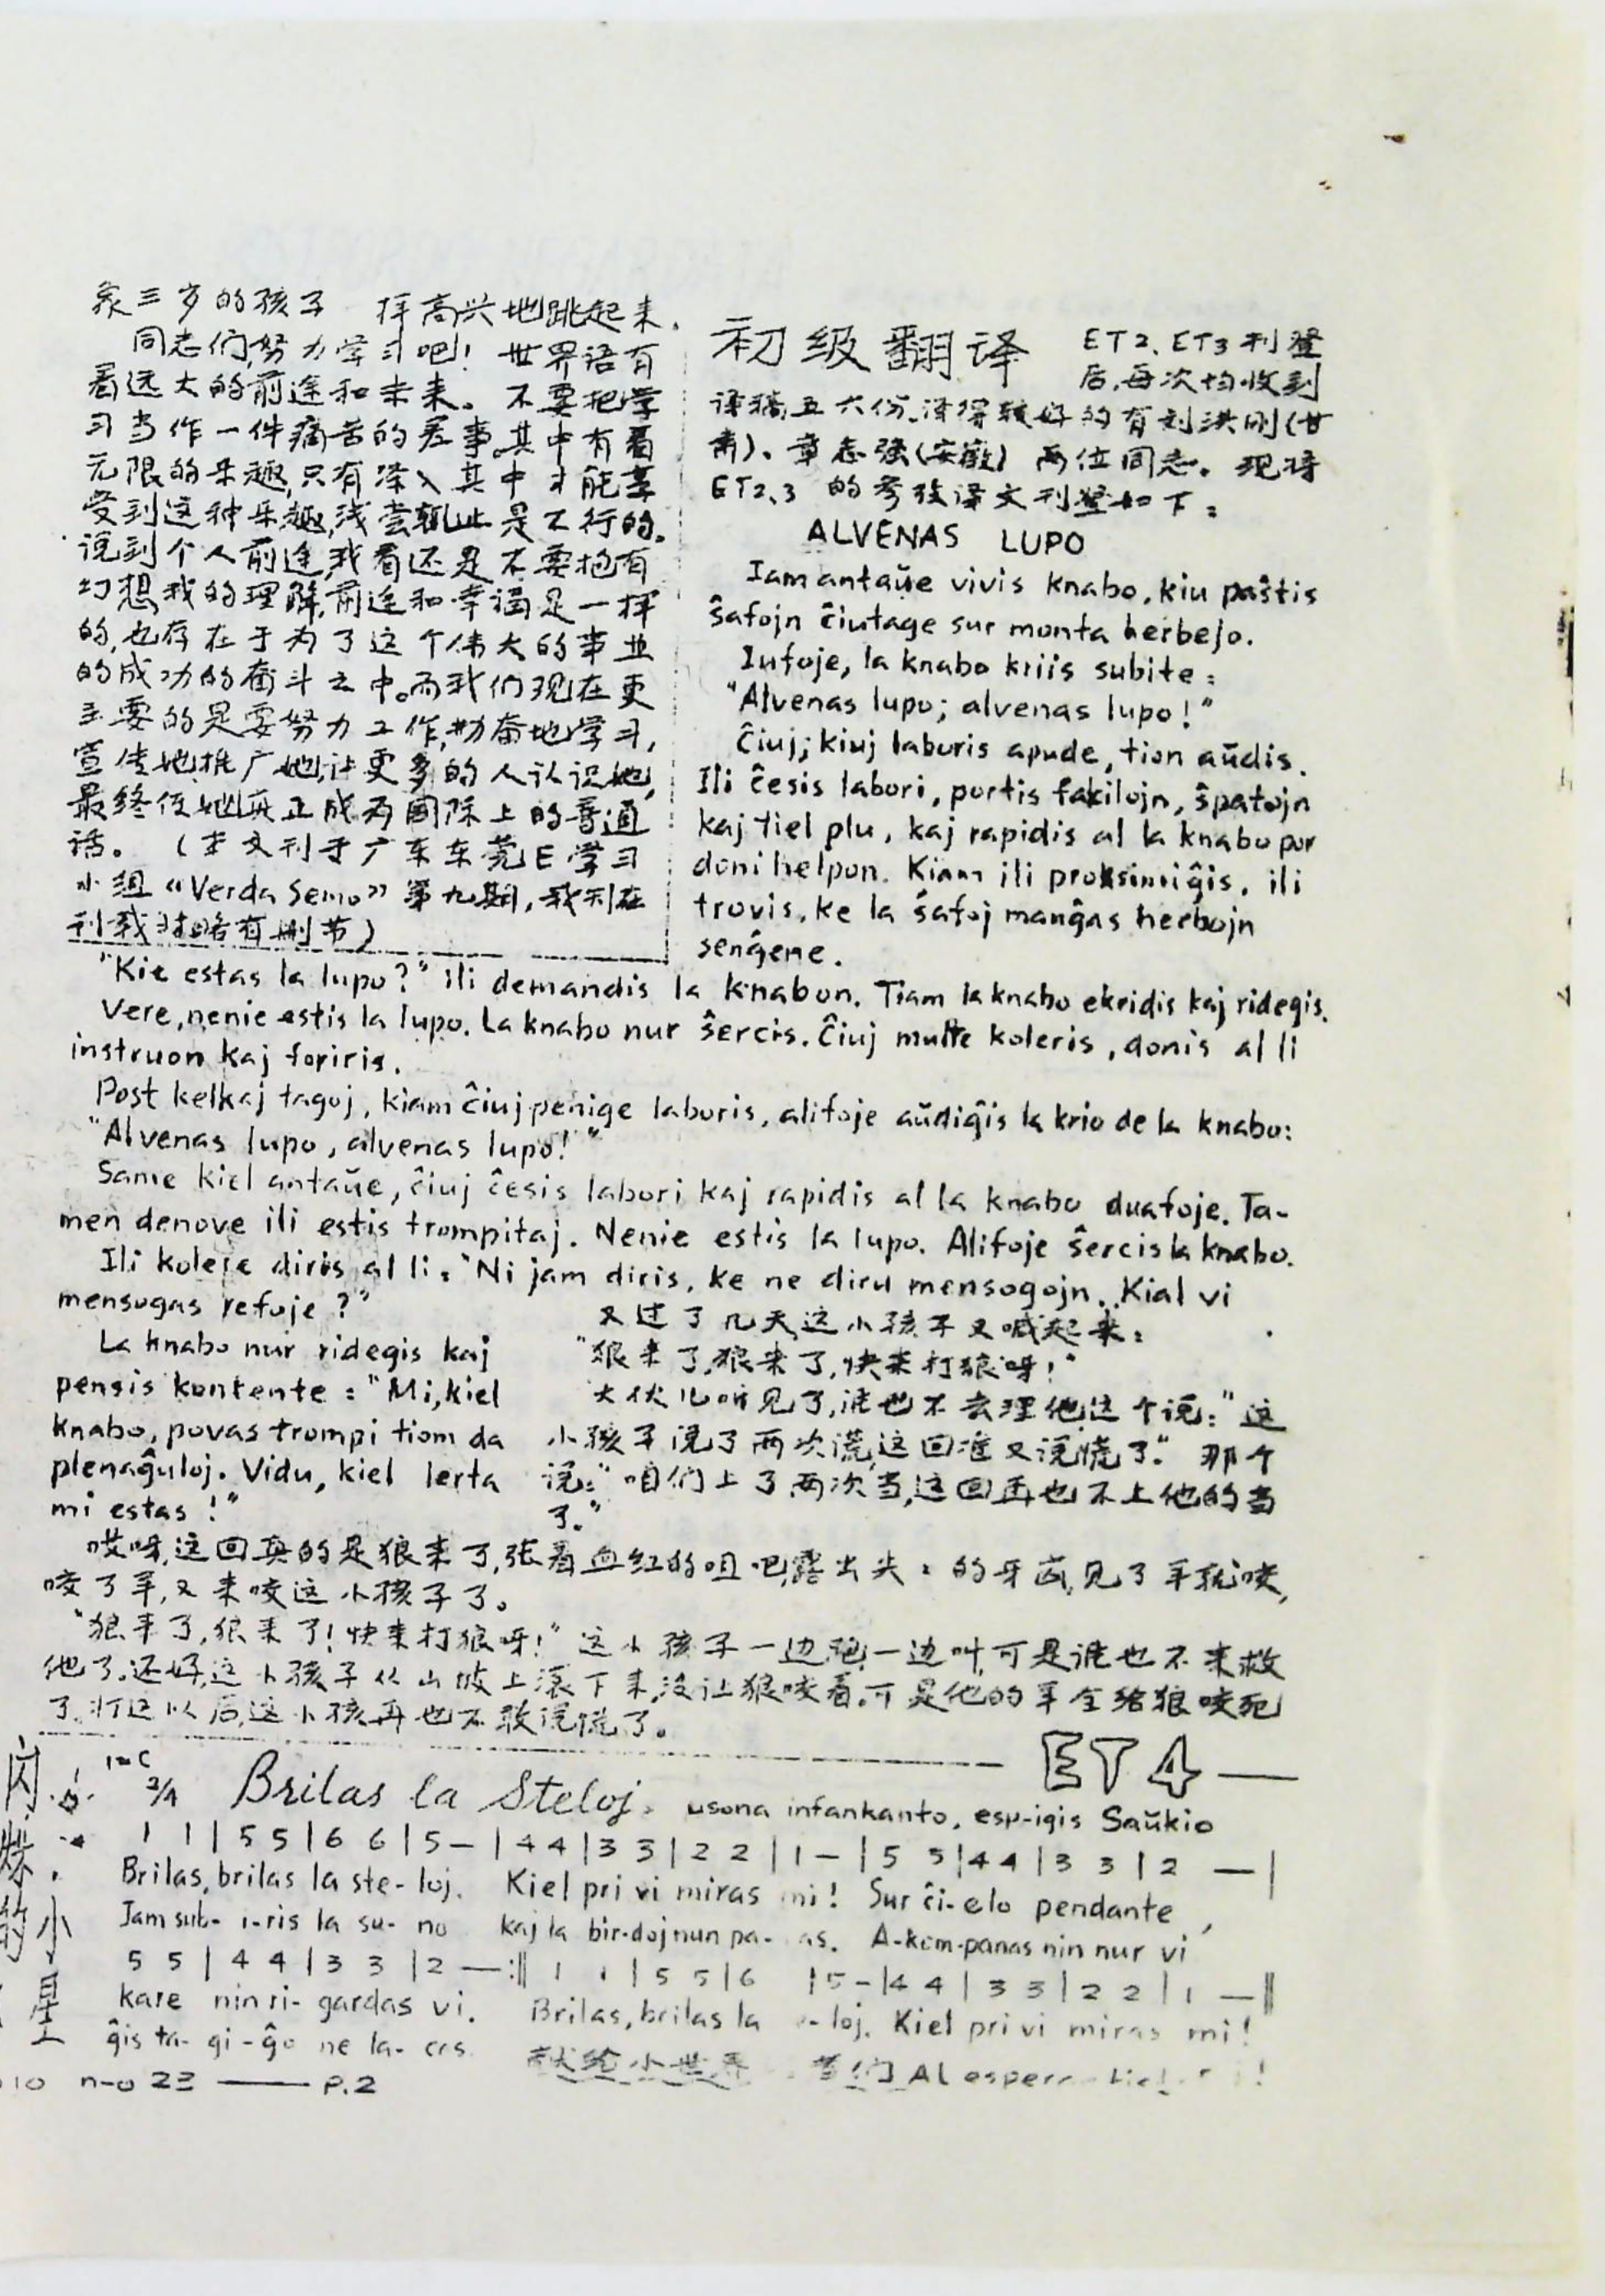 象三岁的孩子 样高兴地跳起来.
同志们,努力学习吧! 世界语有
着远大的前途和未来。不要把学
习当作一件痛苦的差事,其中有着
无限的乐趣,只有深入其中才能享
受到这种乐趣,浅尝辄止是不行的。
说到个人前途,我看还是不要抱有
幻想,我的理解,前途和幸福是一样
的,也存在于为了这个伟大的事业
的成功的奋斗之中。而我们现在更
主要的是要努力工作,勤奋地学习,
宣传她,推广她,让更多的人认识她,
最终使她真正成为国际上的普通
话。 (本文刊于广东东莞E学习
小组《Verda Semo》第九期,我刊在
刊载时略有删节)
初级翻译
ET2、ET3刊登
后,每次均收到
译稿五六份,译得较好的有刘洪刚(甘
肃)、章志强(安徽)两位同志。现将
ET2、3 的参考译文刊登如下:
ALVENAS LUPO
Iam antaŭe vivis knabo, kiu paŝtis
ŝafojn ĉiutage sur monta herbejo.
Iufoje, la knabo kriis subite:
"Alvenas lupo; alvenas lupo!"
Ĉiuj, kiuj laboris apude, tion aŭdis.
Ili ĉesis labori, portis fakilojn, ŝpatojn
kaj tiel plu, kaj rapidis al la knabo por
doni helpon. Kiam ili proksimiĝis, ili
trovis, ke la ŝafoj manĝas herbojn
senĝene.
"Kie estas la lupo?" ili demandis la knabon. Tiam la knabo ekridis kaj ridegis.
Vere, nenie estis la lupo. La knabo nur ŝercis. Ĉiuj multe koleris, donis al li
instruon kaj foriris.
Post kelkaj tagoj, kiam ĉiuj penige laboris, alifoje aŭdiĝis la krio de la knabo:
"Alvenas lupo, alvenas lupo!"
Same kiel antaŭe, ĉiuj ĉesis labori kaj rapidis al la knabo duafoje. Ta-
men denove ili estis trompitaj. Nenie estis la lupo. Alifoje ŝercis la knabo.
Ili kolere diris al li: "Ni jam diris, ke ne diru mensogojn. Kial vi
mensogas refoje?"
La knabo nur ridegis kaj
pensis kontente: "Mi, kiel
knabo, povas trompi tiom da
plenaĝuloj. Vidu, kiel lerta
mi estas!"
又过了几天,这小孩子又喊起来:
"狼来了,狼来了,快来打狼呀!"
大伙儿听见了,谁也不去理他,这个说:"这
小孩子说了两次谎,这回准又说谎了." 那个
说:"咱们上了两次当,这回再也不上他的当
了。"
哎呀,这回真的是狼来了,张着血红的咀吧,露出尖:的牙齿,见了羊就咬,
咬了羊,又来咬这小孩子了。
"狼来了,狼来了!快来打狼呀!" 这小孩子一边跑,一边叫,可是谁也不来救
他了.还好,这小孩子从山坡上滚下来,没让狼咬着.可是他的羊全给狼咬死
了.打这以后,这小孩再也不敢说谎了。
ET4
闪烁的小星
1=C
2/4 Brilas la Steloj. usona infankanto, esp-igis Saŭkio
1 1 | 5 5 | 6 6 | 5 — | 4 4 | 3 3 | 2 2 | 1 — | 5 5 | 4 4 | 3 3 | 2 — |
Brilas, brilas la ste-loj. Kiel pri vi miras mi! Sur ĉi-elo pendante,
Jam sub-i-ris la su-no kaj la bir-doj nun pa- as. A-kom-panas nin nur vi
5 5 | 4 4 | 3 3 | 2 —:‖ 1 1 | 5 5 | 6 | 5 — | 4 4 | 3 3 | 2 2 | 1 — ‖
kare nin ri-gardas vi. Brilas, brilas la -loj. Kiel pri vi miras mi!
ĝis ta-gi-ĝo ne la-
献给小世界 者们 Al
10 n-o 23 —— p.2